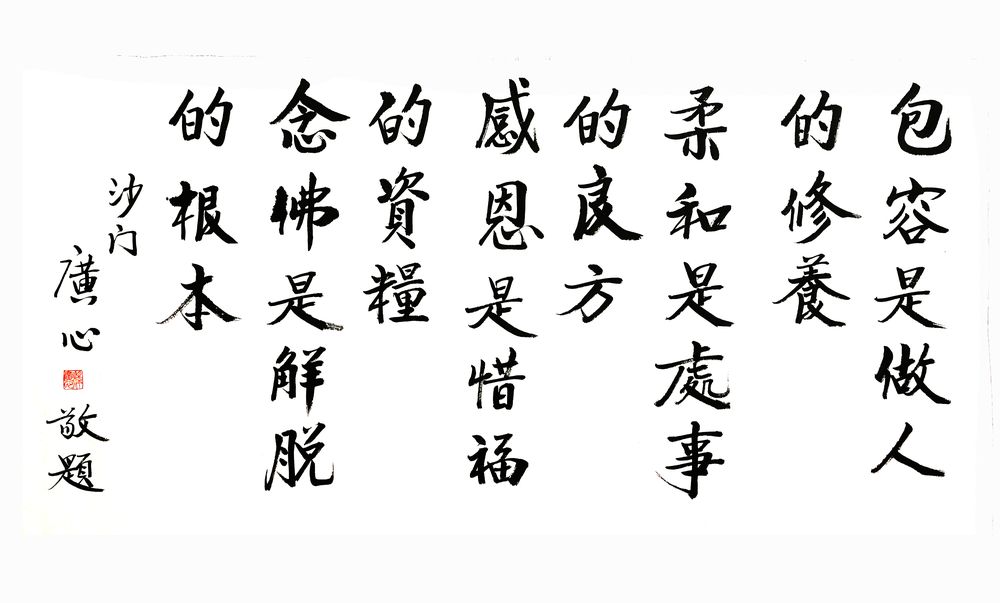 包容是做人
的修養
柔和是處事
的良方
感恩是惜福
的資糧
念佛是解脱
的根本
沙门
廣心
敬題